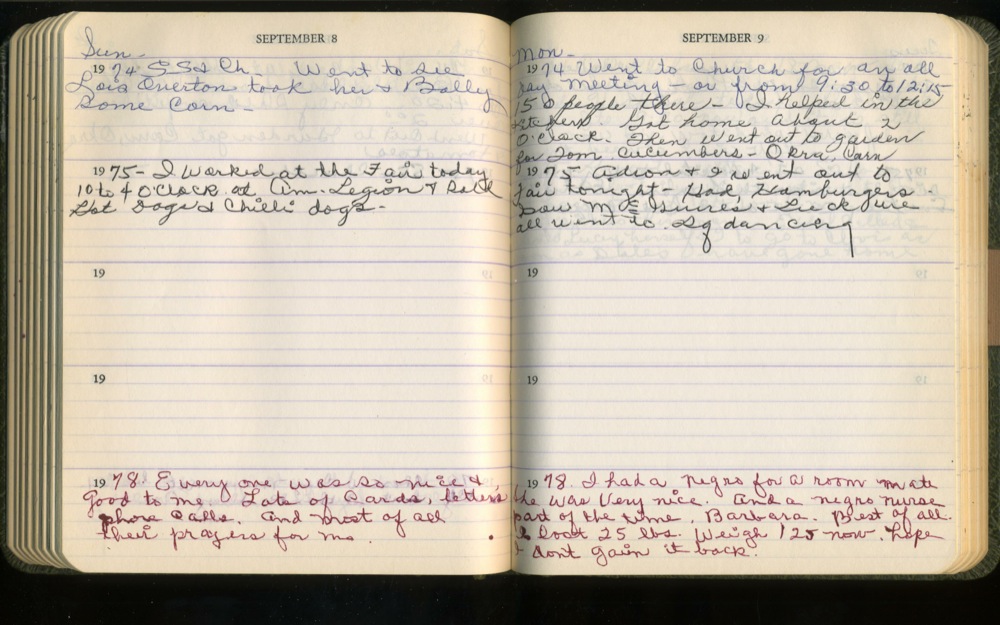 SEPTEMBER 8
Sun.
1974 S S & Ch. Went to see
Lois Overton took her & Bolly
Some Corn.
1975 - I Worked at the Fair today
10 to 4 O'Clock at Am. Legion & Sold
Hot Dogs & Chilli dogs.
19
19
1978. Every one was so nice &
Good to me. Lots of Cards, letters
phone Calls. And most of all
their prayers for me.
SEPTEMBER 9
Mon.
1974 Went to Church for an all
day Meeting - or from 9:30 to 12:15
150 people there - I helped in the
Kitchen. Got home About 2
O'Clock. Then went out to garden
for Tom. Cucumbers - Okra, Corn
1975 & I went out to
Fair tonight - Had Hamburgers
Saw M E & we
all went to Sq dancing
19
19
1978. I had a negro for a room mate
She was Very nice. And a negro nurse
part of the time, Barbara. Best of all
I lost 25 lbs. Weigh 125 now. hope
I dont gain it back.